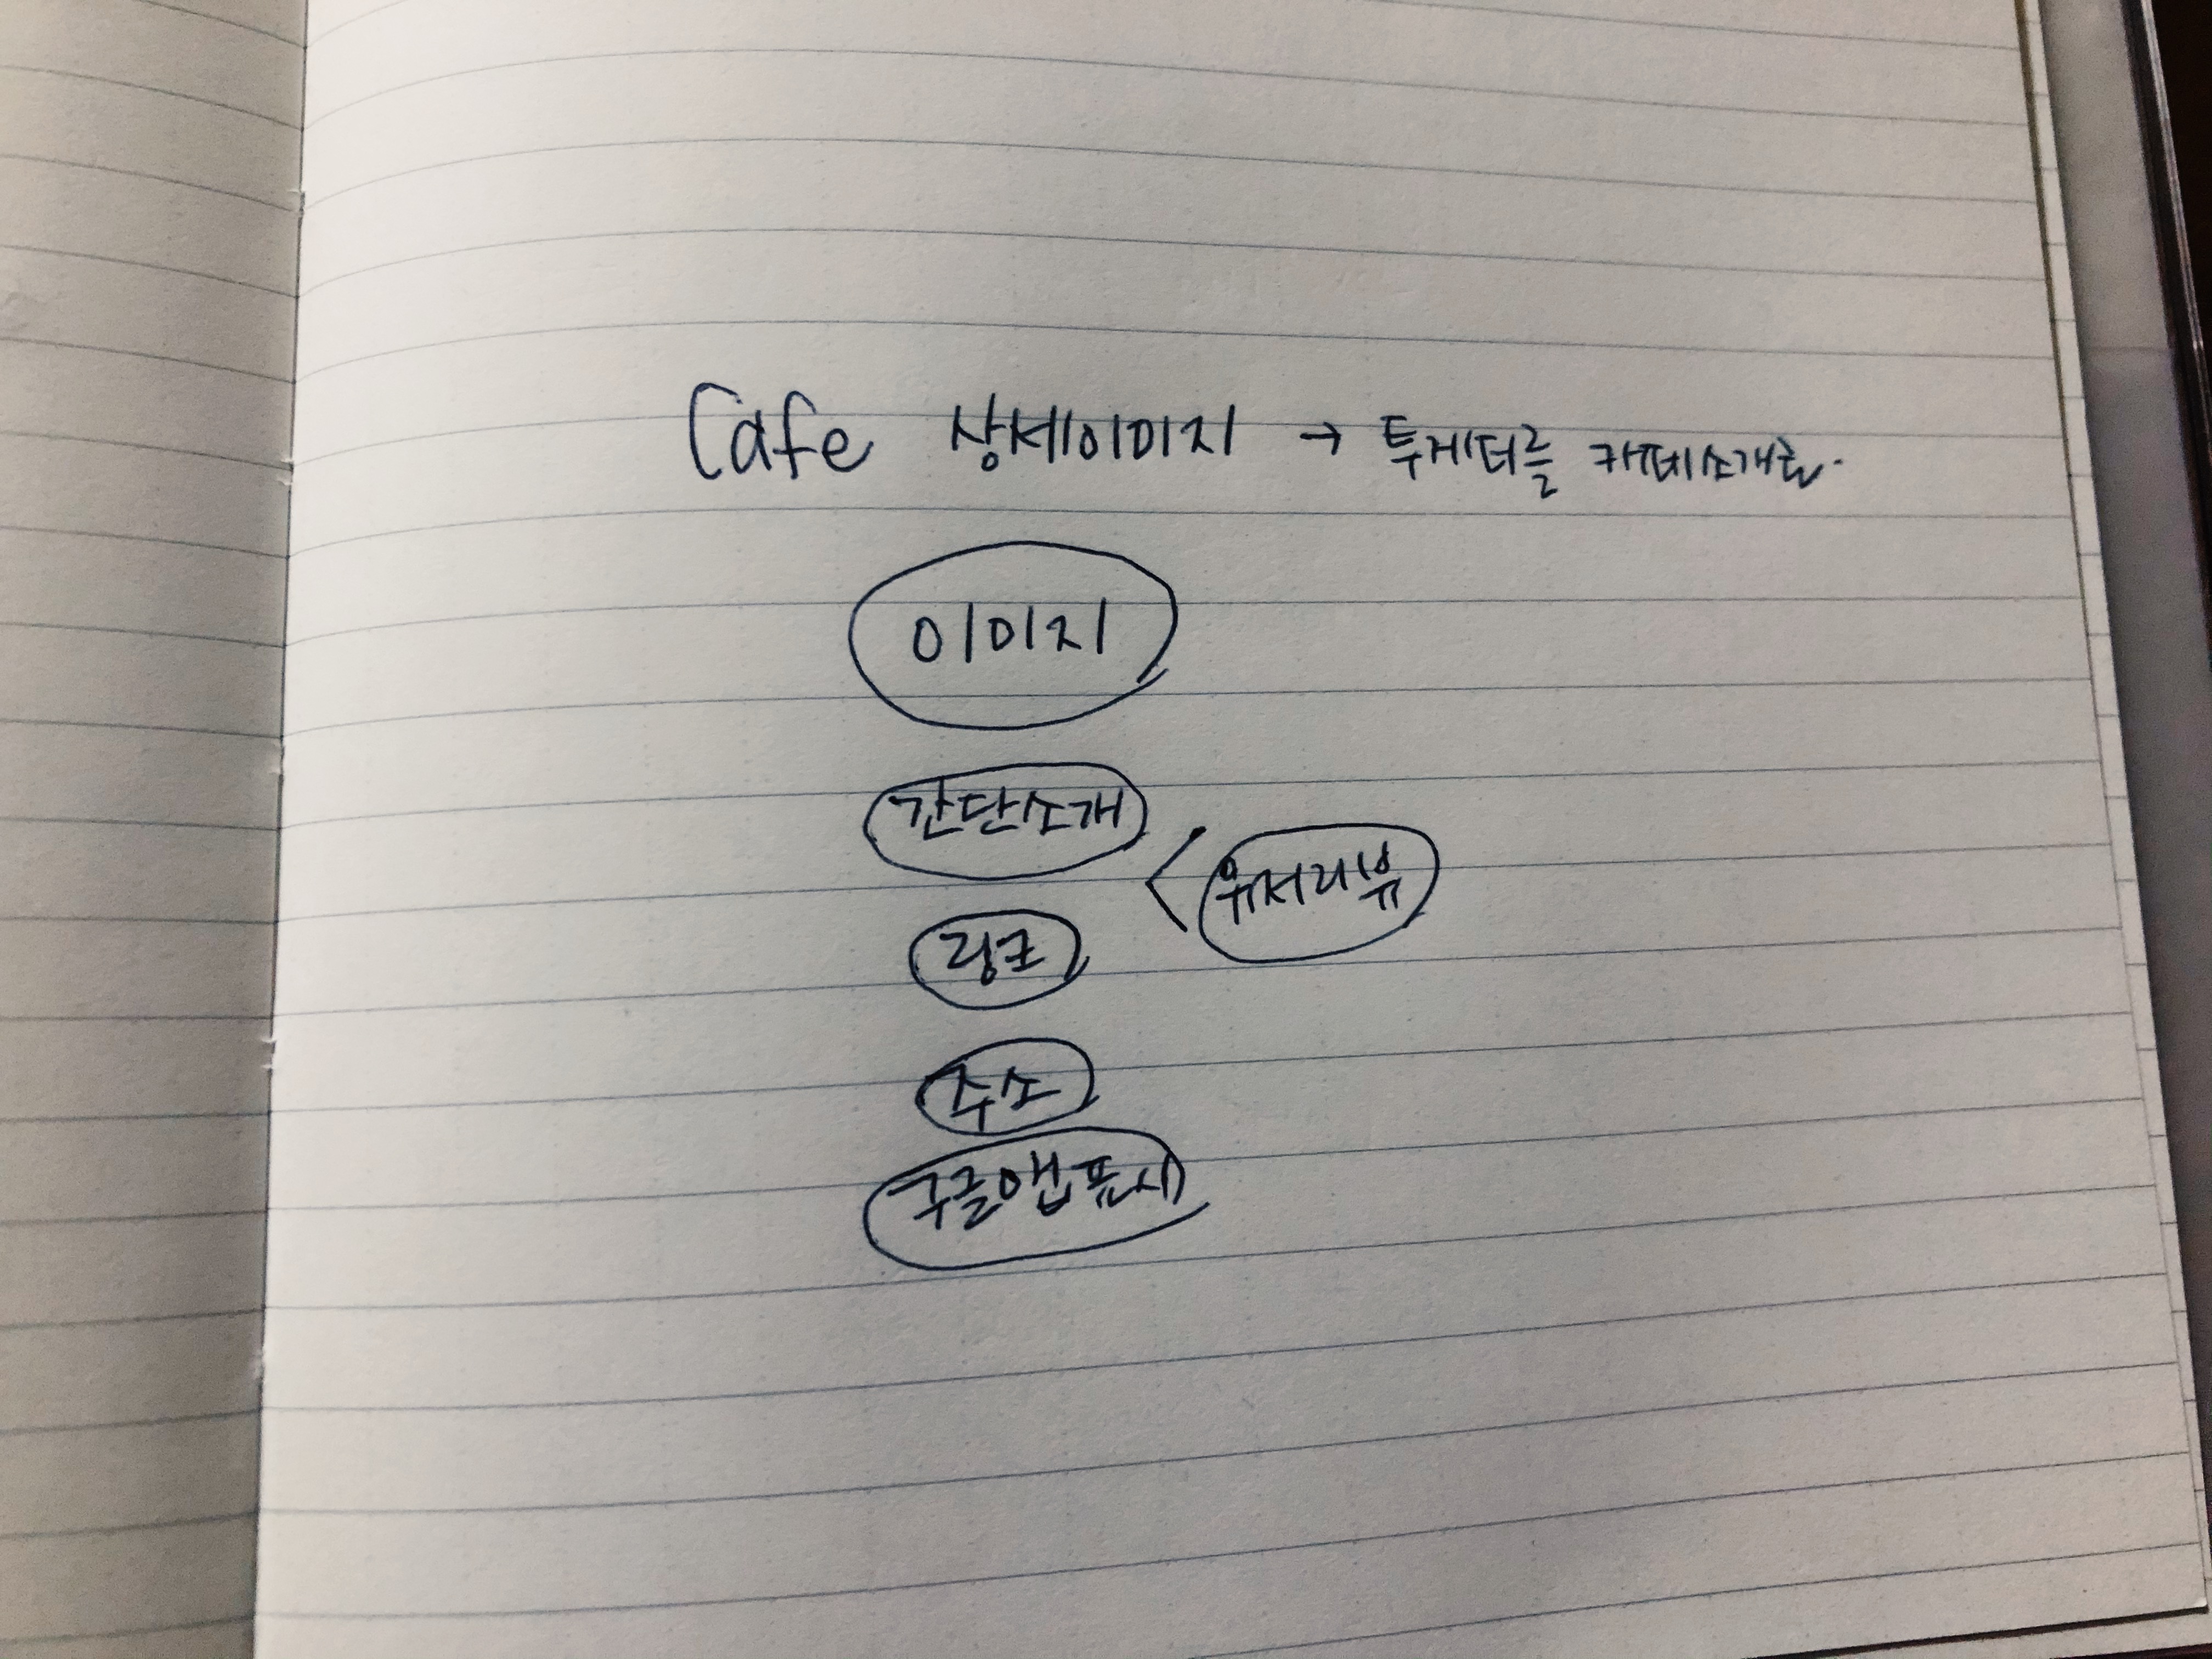 Cafe 상세이미지 → 투게더를 카페소개로.
이미지
간단소개
유저리뷰
링크
주소
구글앱표시